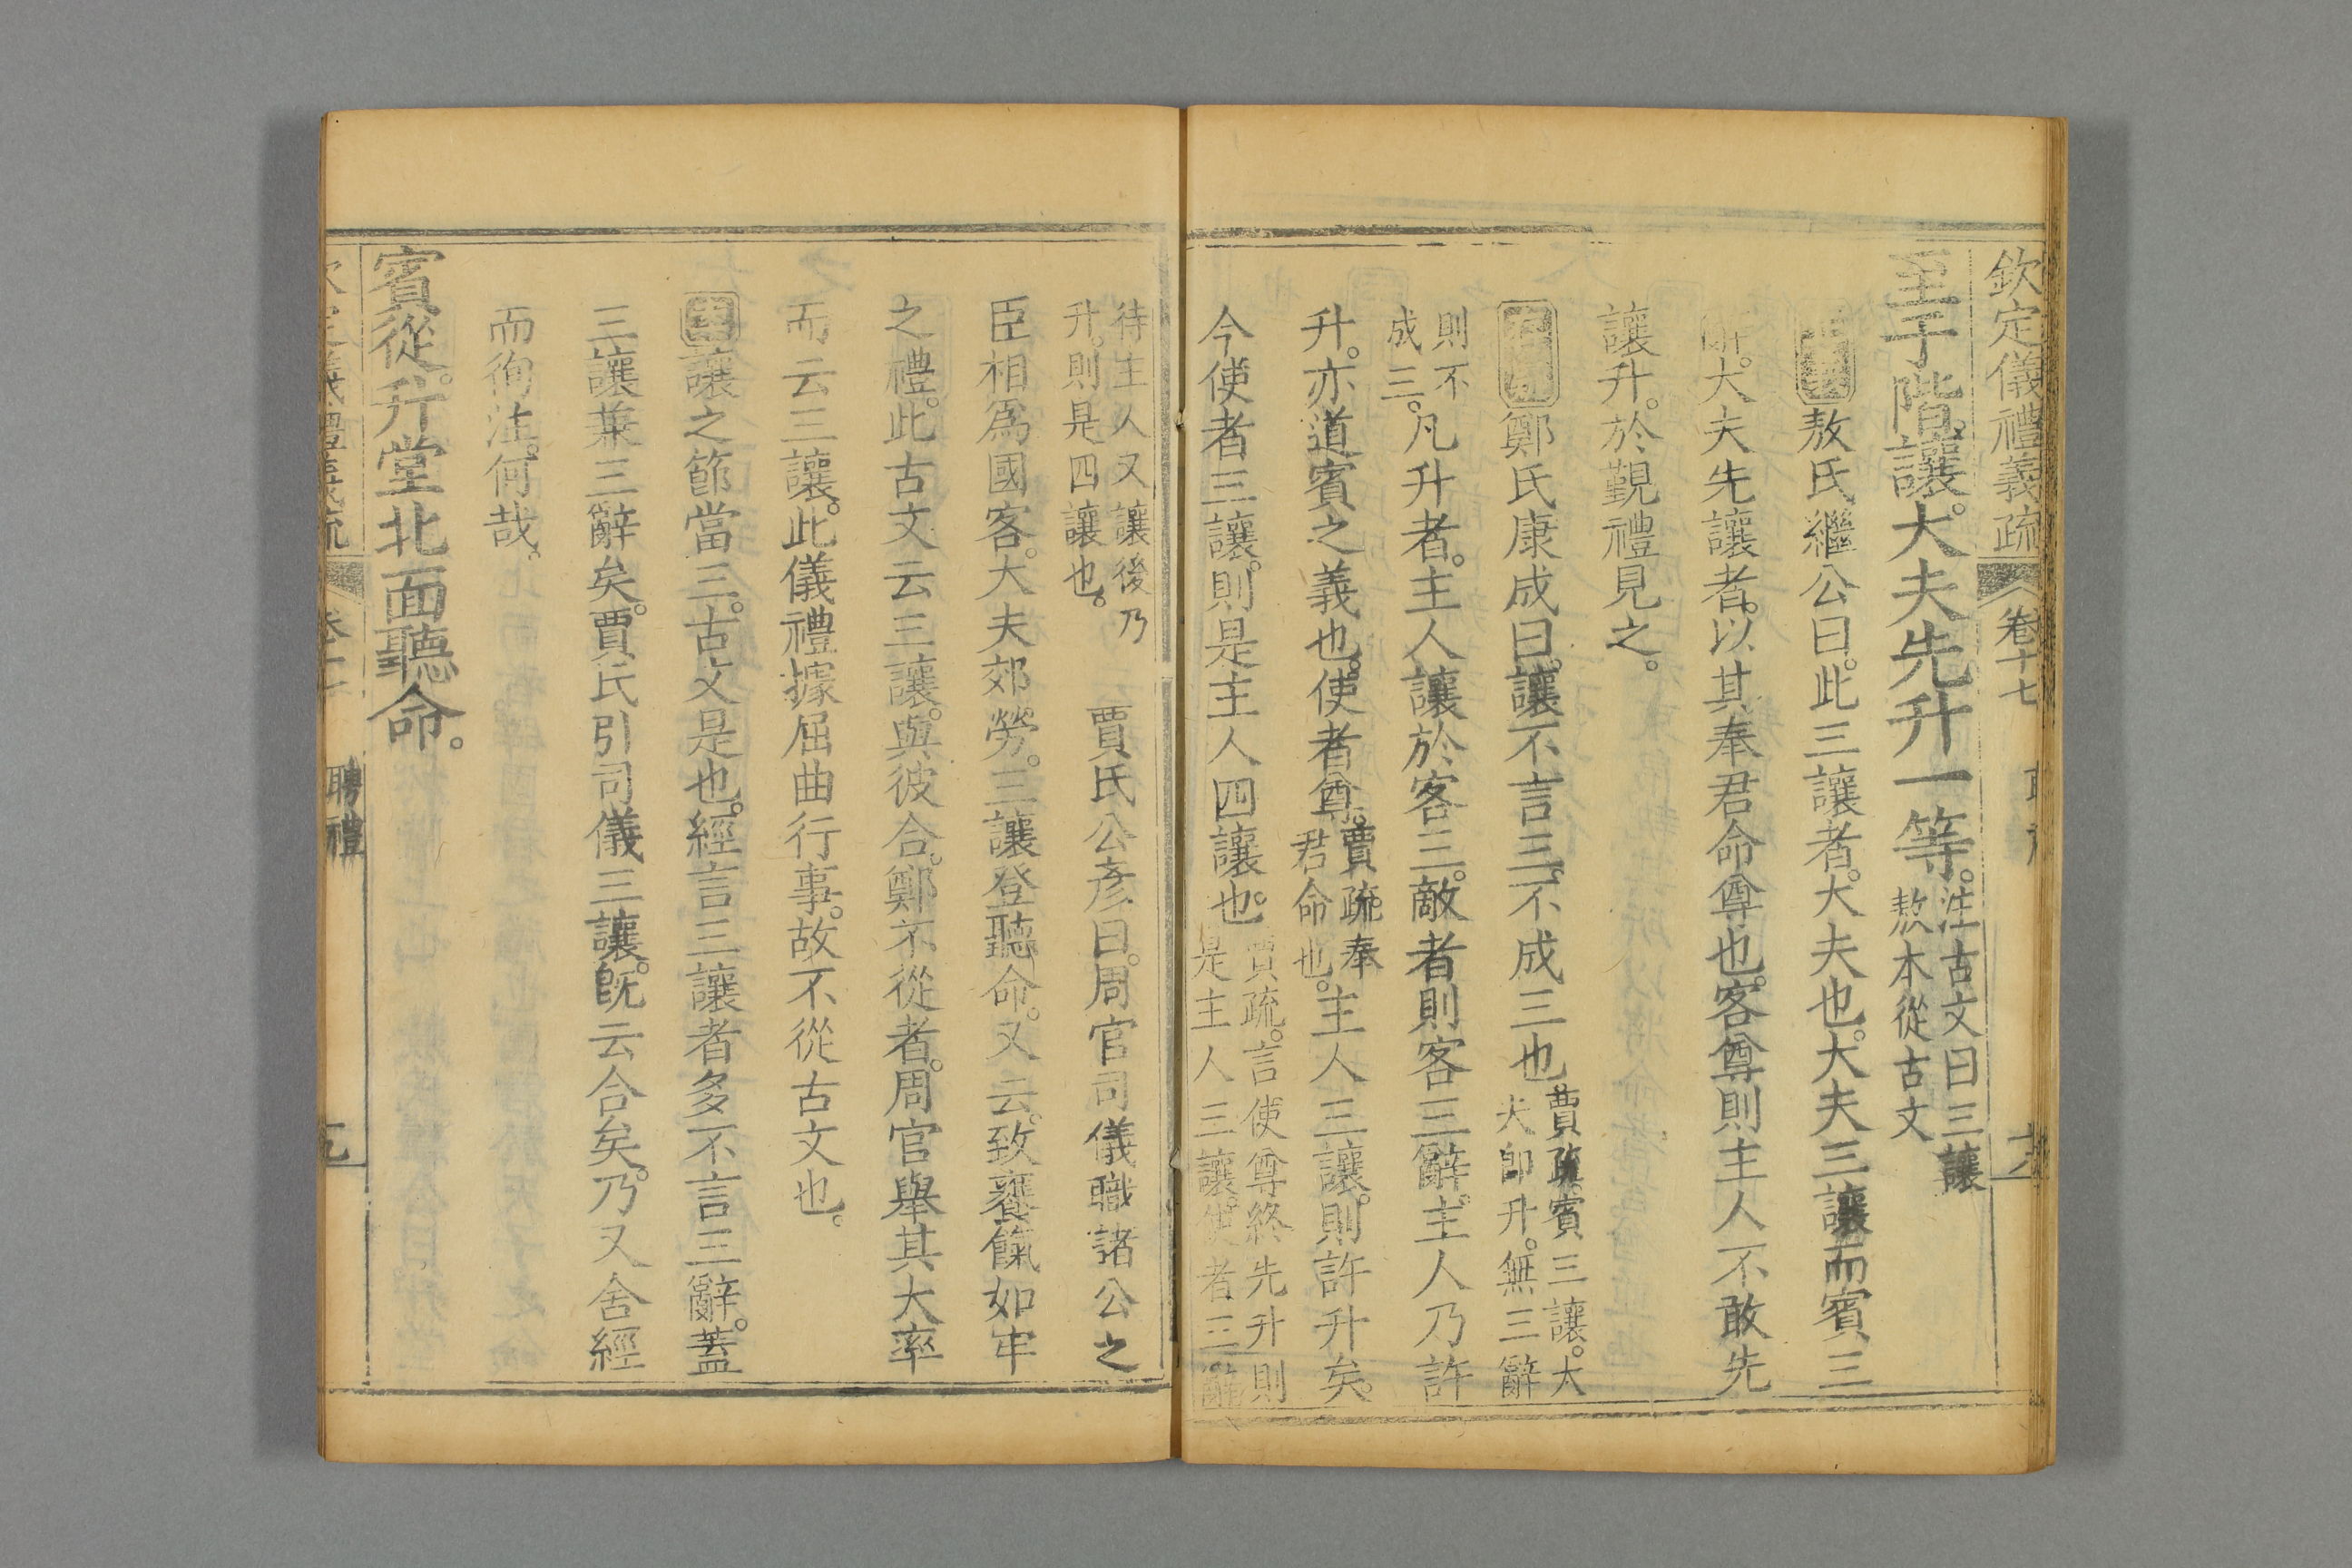 欽定儀禮義疏 卷十七
至于階讓。大夫先升一等。注古文曰三讓
敖本從古文
敖氏繼公曰。此三讓者。大夫也。大夫三讓而賓三
辭。大夫先讓者。以其奉君命尊也。客尊則主人不敢先
讓升。於覲禮見之。
鄭氏康成曰。讓不言三。不成三也賈疏。賓三讓。大
夫卽升。無三辭
則不
成三。凡升者。主人讓於客三。敵者則客三辭。主人乃許
升。亦道賓之義也。使者尊。賈疏。奉
君命也。主人三讓。則許升矣。
今使者三讓。則是主人四讓也。賈疏。言使尊終先升則
是主人三讓。使者三辭
待主人又讓後乃
升。則是四讓也。
賈氏公彥曰。周官司儀職諸公之
臣相爲國客。大夫郊勞。三讓登聽命。又云。致饔餼如牢
之禮。此古文云三讓。與彼合。鄭不從者。周官舉其大率
而云三讓。此儀禮據屈曲行事。故不從古文也。
讓之節當三。古文是也。經言三讓者多不言三辭。蓋
三讓兼三辭矣。賈氏引司儀三讓。旣云合矣。乃又舍經
而徇注。何哉。
賓從。升堂北面聽命。
聘禮